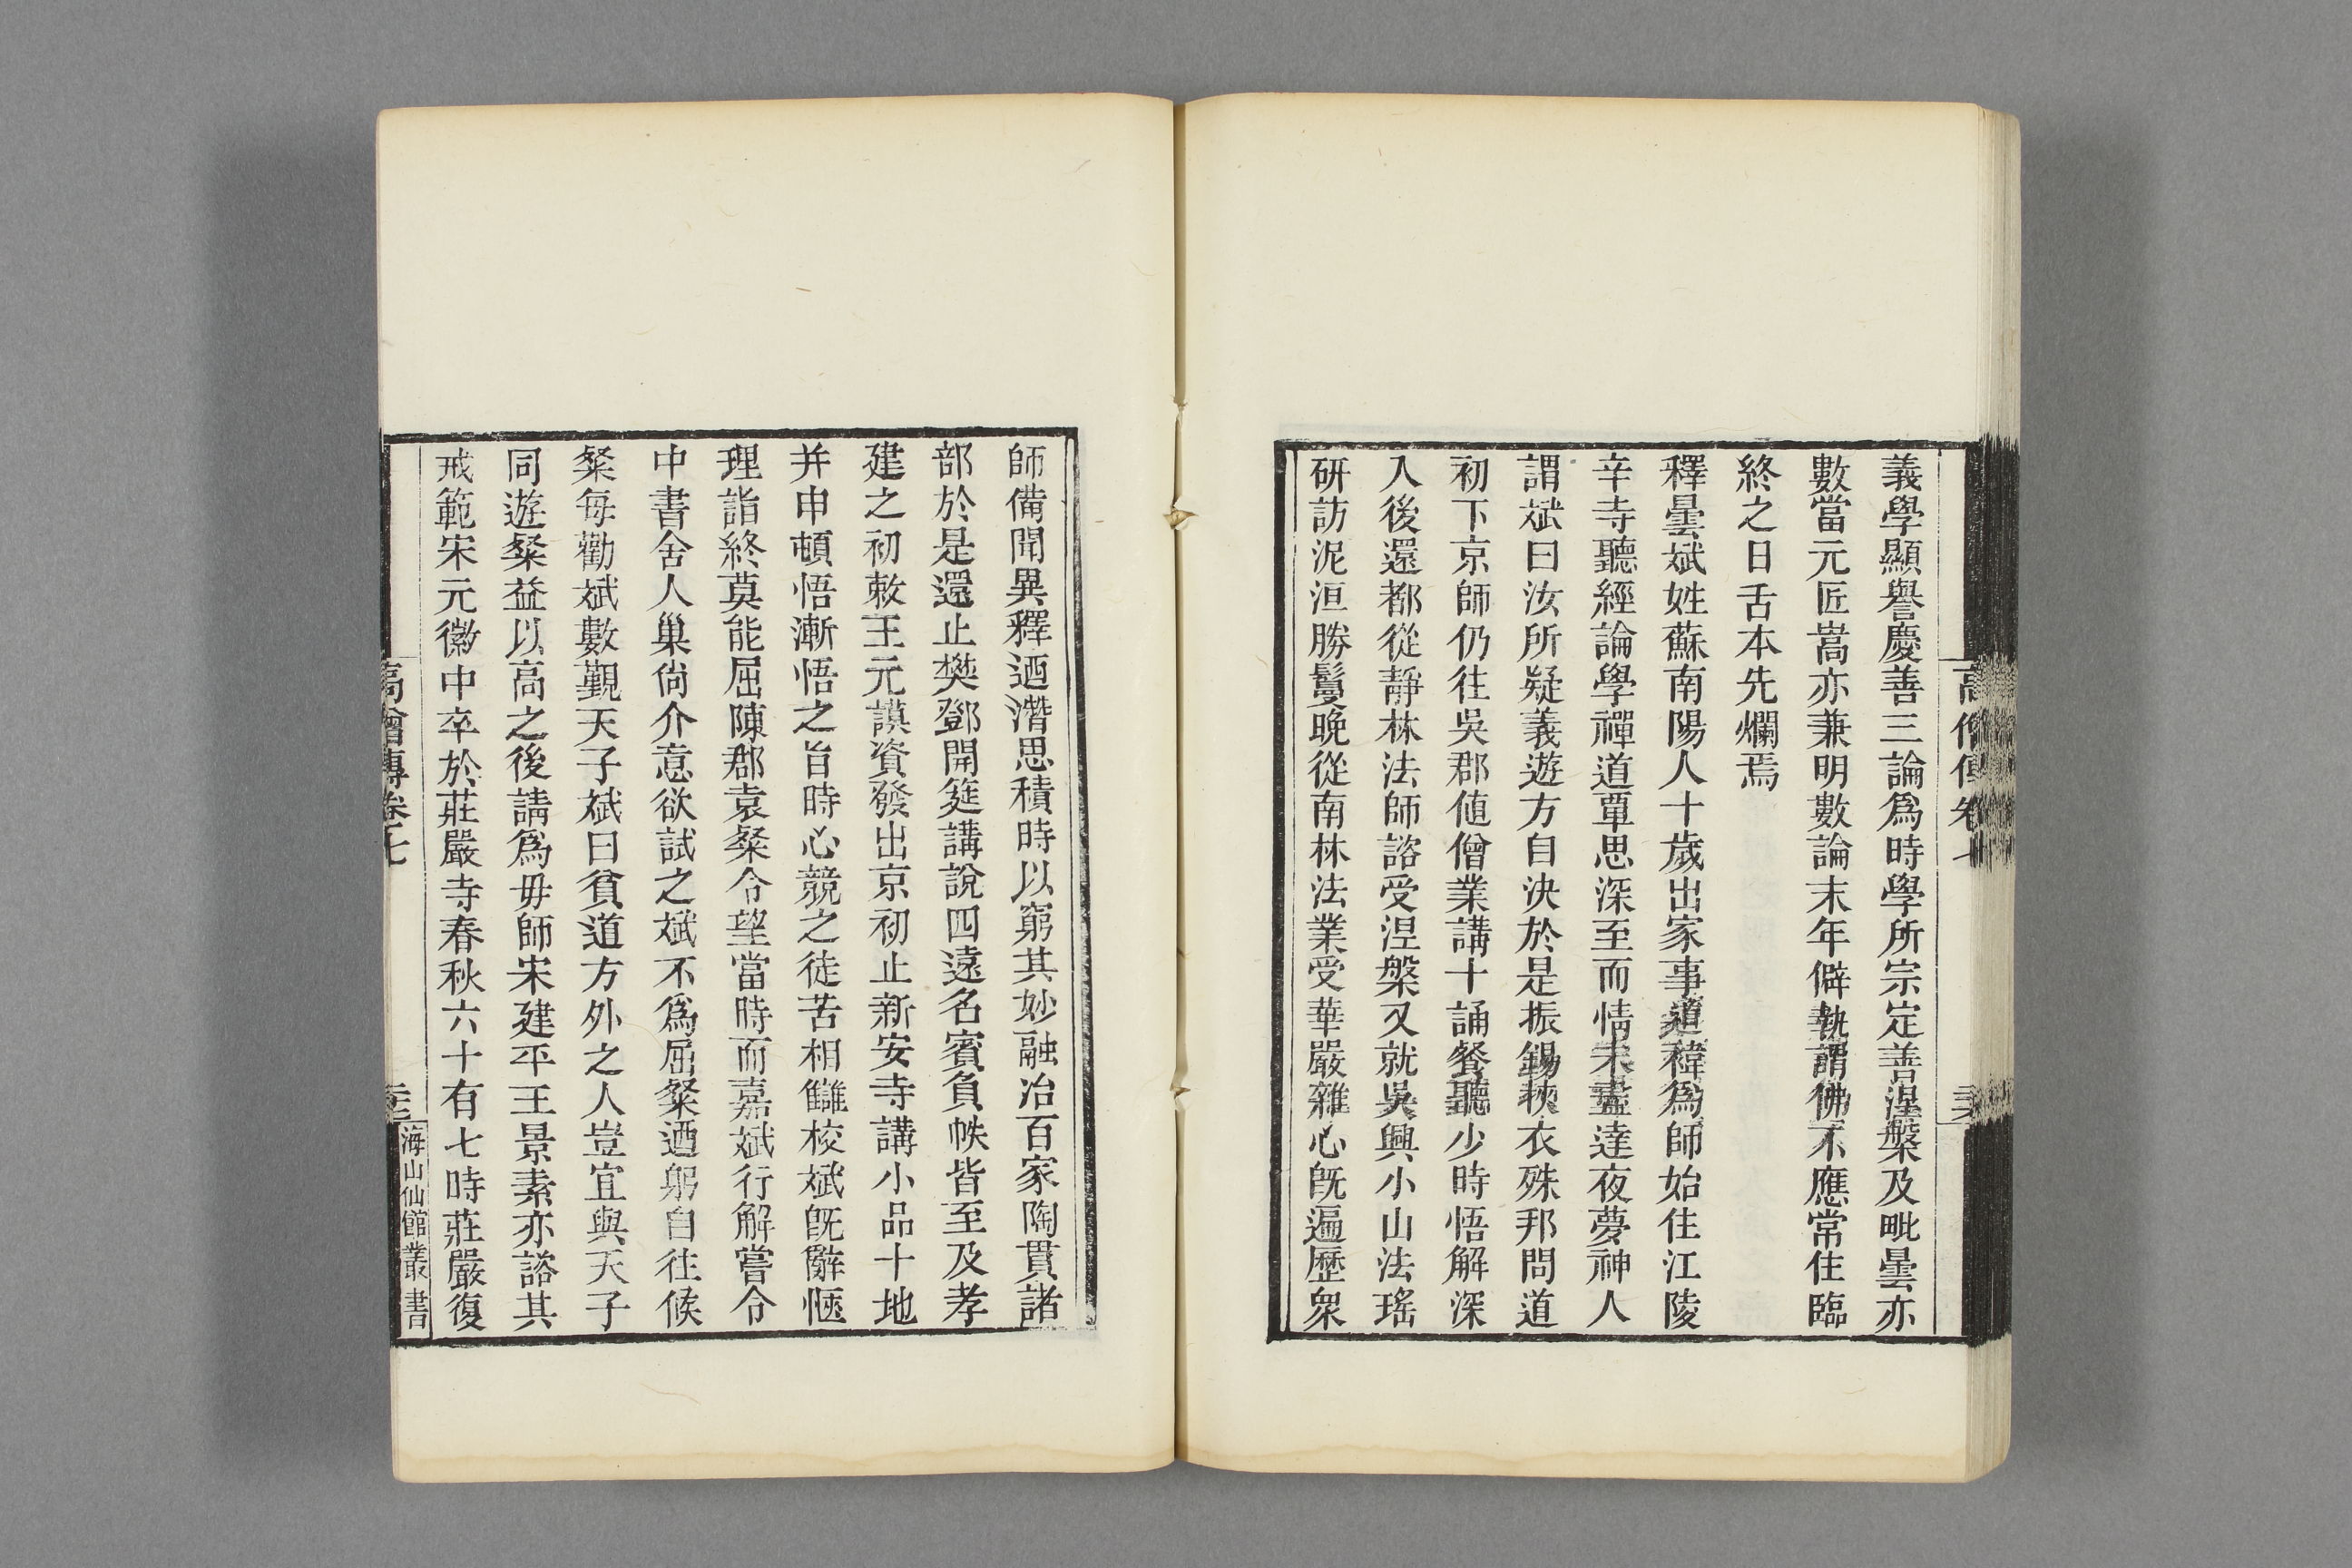 義學顯譽慶善三論爲時學所宗定善涅槃及毗曇亦
數當元匠嵩亦兼明數論末年僻執謂佛不應常住臨
終之日舌本先爛焉
釋曇斌姓蘇南陽人十歲出家事道禕爲師始住江陵
辛寺聽經論學禪道覃思深至而情未盡達夜夢神人
謂斌曰汝所疑義遊方自決於是振錫挾衣殊邦問道
初下京師仍往吳郡値僧業講十誦餐聽少時悟解深
入後還都從靜林法師諮受涅槃又就吳興小山法瑤
研訪泥洹勝鬘晚從南林法業受華嚴雜心旣遍歷衆
師備聞異釋迺潛思積時以窮其妙融冶百家陶貫諸
部於是還止樊鄧開筵講說四遠名賓負帙皆至及孝
建之初敕王元謨資發出京初止新安寺講小品十地
并申頓悟漸悟之旨時心競之徒苦相讎校斌旣辭愜
理詣終莫能屈陳郡袁粲令望當時而嘉斌行解嘗令
中書舍人巢尙介意欲試之斌不爲屈粲迺躬自往候
粲每勸斌數覲天子斌曰貧道方外之人豈宜與天子
同遊粲益以高之後請爲母師宋建平王景素亦諮其
戒範宋元徽中卒於莊嚴寺春秋六十有七時莊嚴復
高僧傳卷七
海山仙館叢書